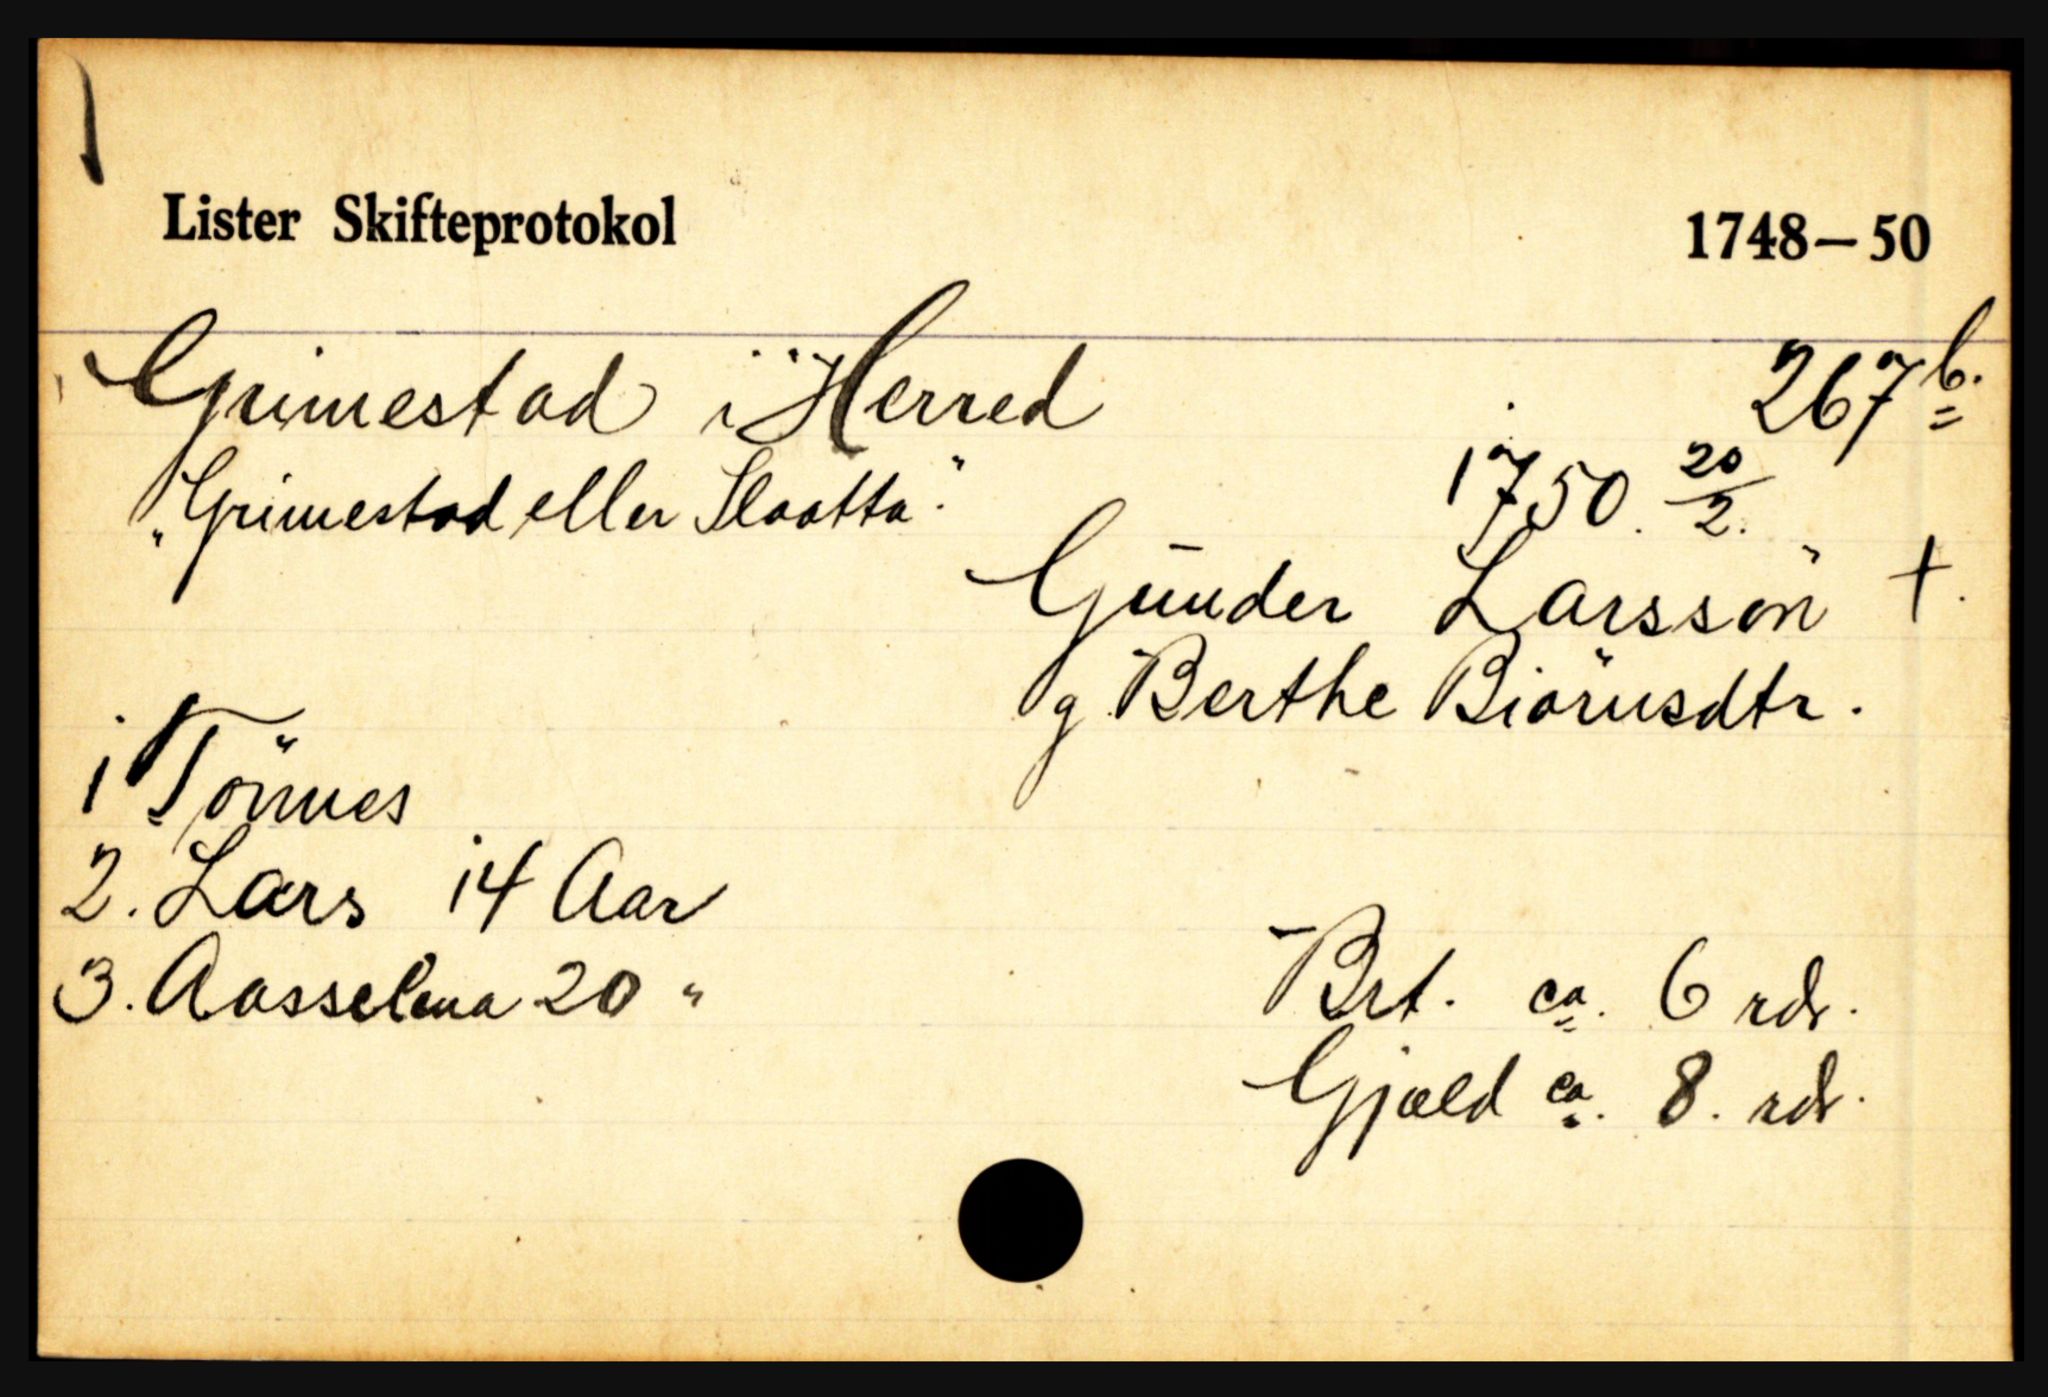 Lister Skifteprotokol 1748–50
Grimestad i Herred 267 b.
"Grimestad eller Slaatta" 1750. 20/2.
Gunder Larssön †.
g. Berthe Biörnsdtr.
1 Tönnes
2. Lars 14 Aar
3. Aasselena 20 "
Brt. ca. 6 rdr.
Gjæld ca. 8. rdr.